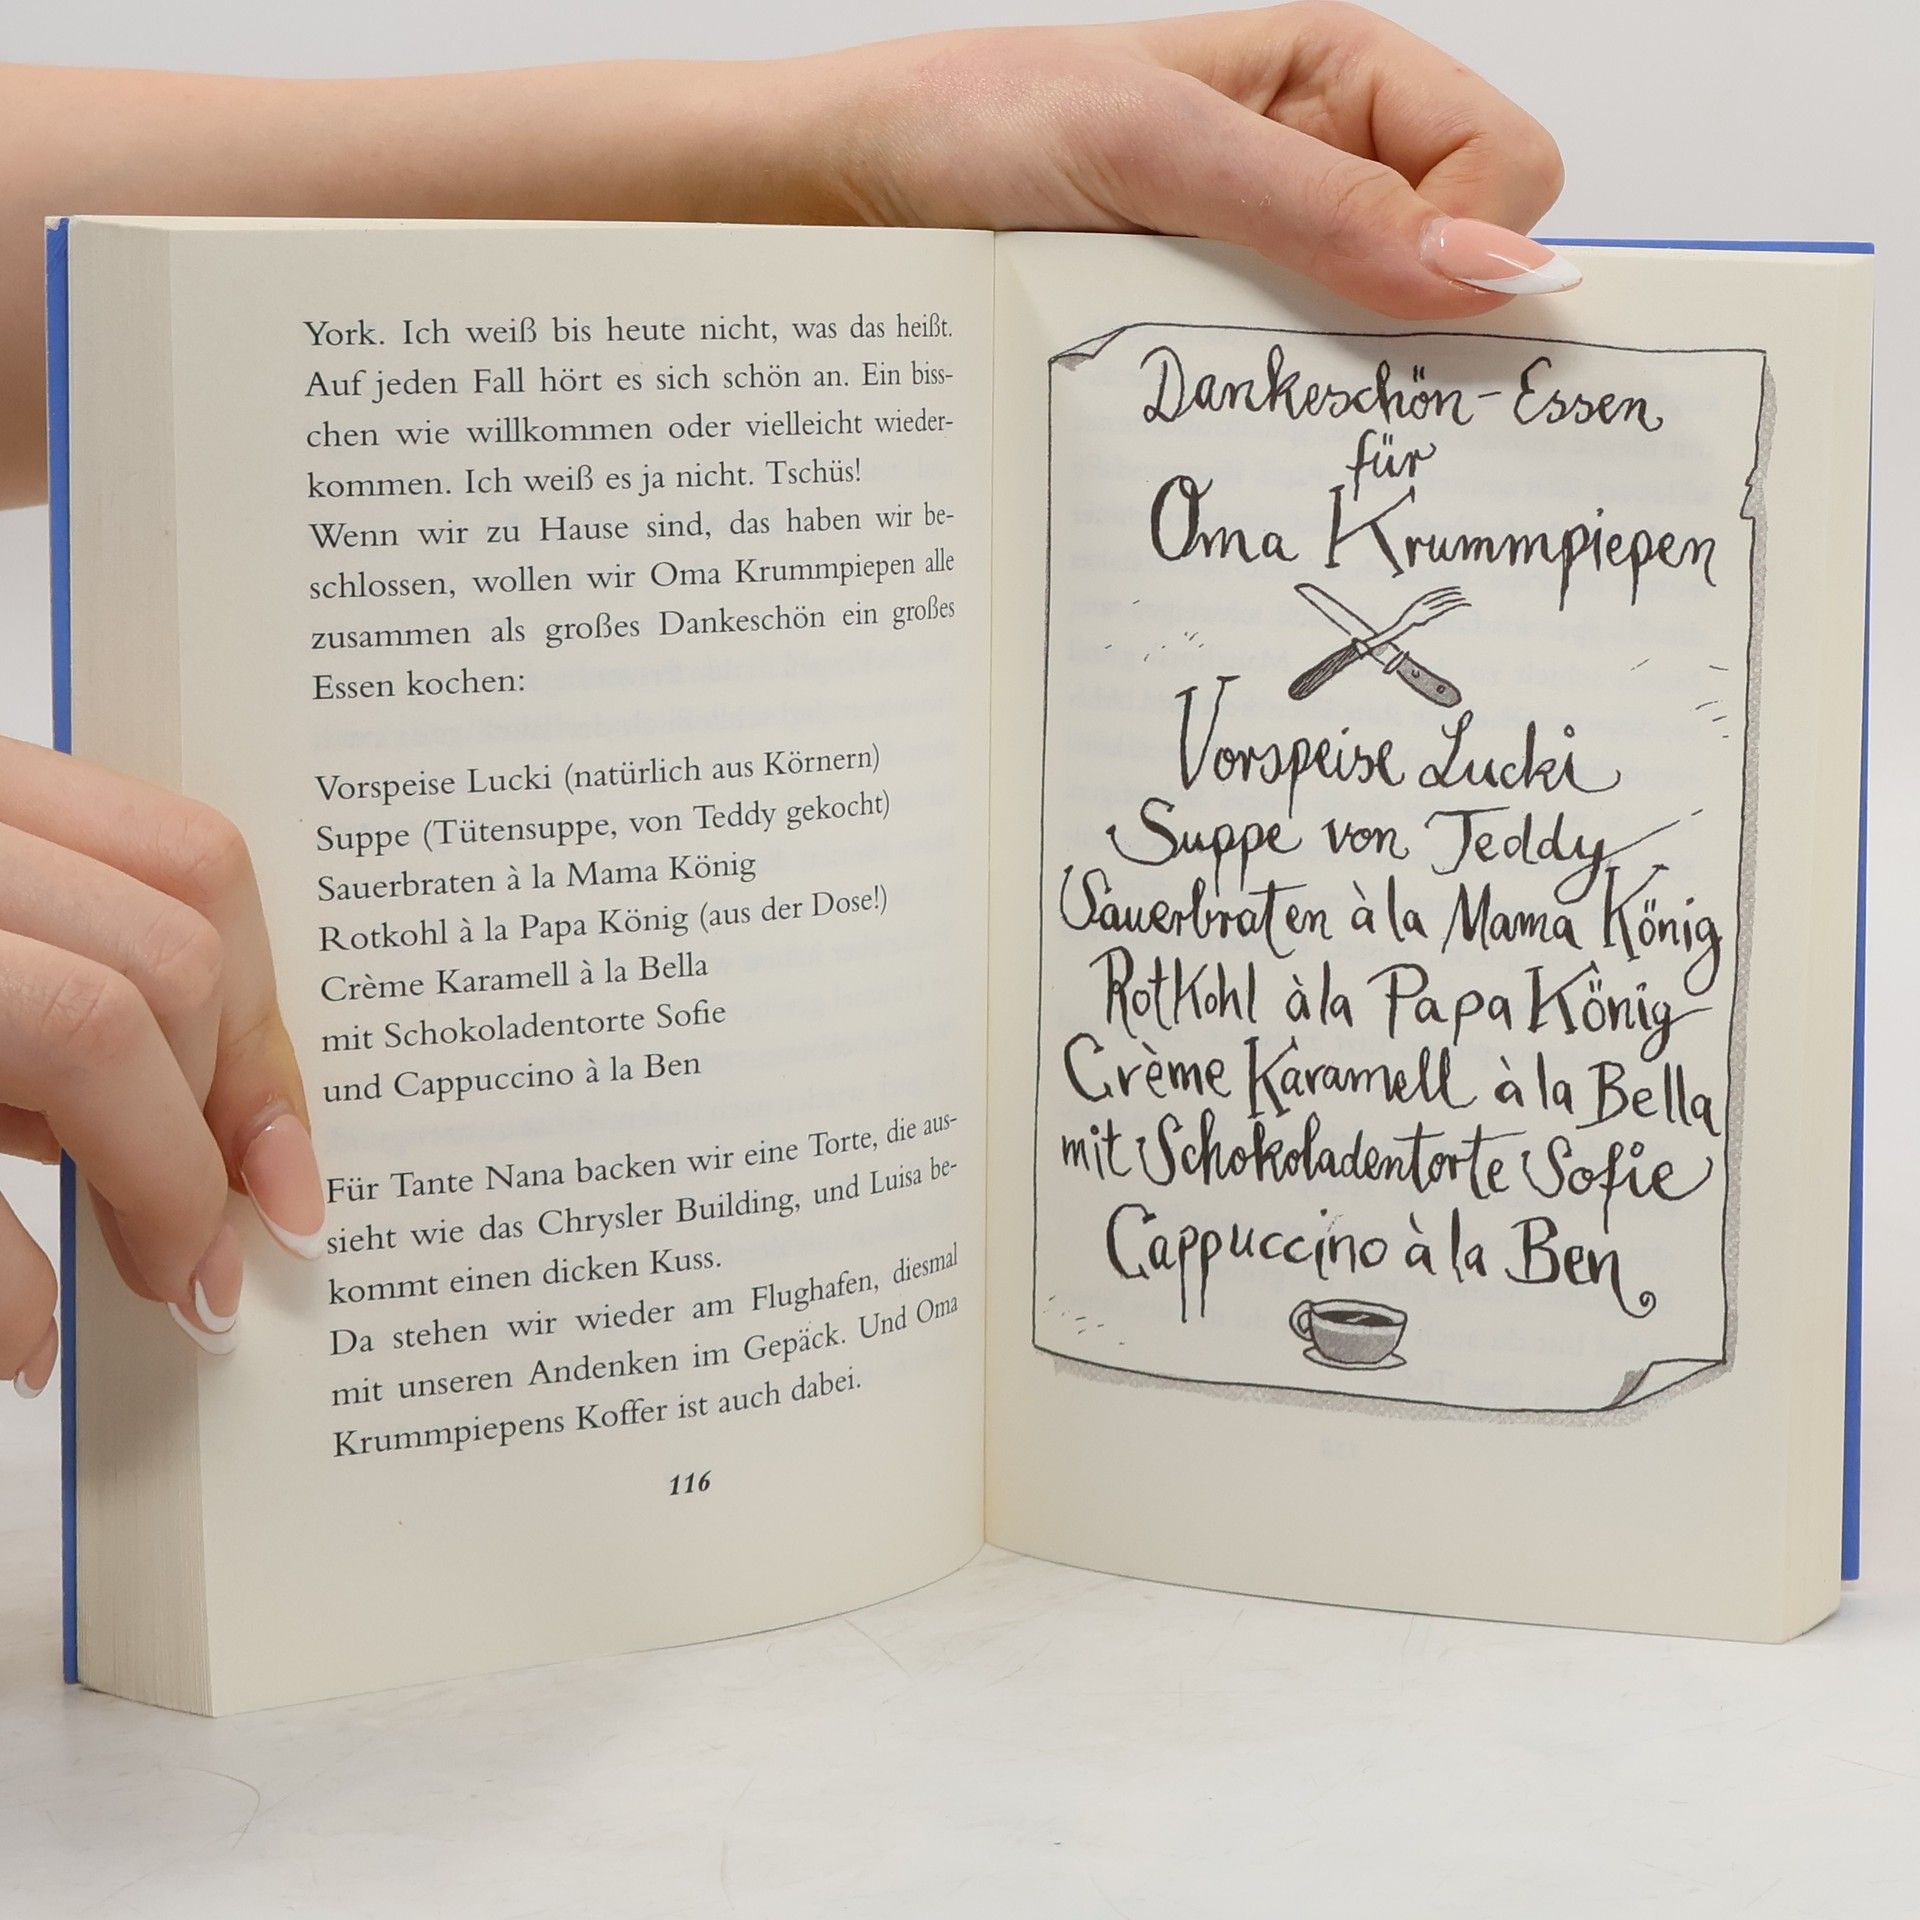 York. Ich weiß bis heute nicht, was das heißt.
Auf jeden Fall hört es sich schön an. Ein biss-
chen wie willkommen oder vielleicht wieder-
kommen. Ich weiß es ja nicht. Tschüs!
Wenn wir zu Hause sind, das haben wir be-
schlossen, wollen wir Oma Krummpiepen alle
zusammen als großes Dankeschön ein großes
Essen kochen:
Vorspeise Lucki (natürlich aus Körnern)
Suppe (Tütensuppe, von Teddy gekocht)
Sauerbraten à la Mama König
Rotkohl à la Papa König (aus der Dose!)
Crème Karamell à la Bella
mit Schokoladentorte Sofie
und Cappuccino à la Ben
Für Tante Nana backen wir eine Torte, die aus-
sieht wie das Chrysler Building, und Luisa be-
kommt einen dicken Kuss.
Da stehen wir wieder am Flughafen, diesmal
mit unseren Andenken im Gepäck. Und Oma
Krummpiepens Koffer ist auch dabei.
116
Dankeschön-Essen
für
Oma Krummpiepen
Vorspeise Lucki
Suppe von Teddy
Sauerbraten à la Mama König
Rotkohl à la Papa König
Crème Karamell à la Bella
mit Schokoladentorte Sofie
Cappuccino à la Ben